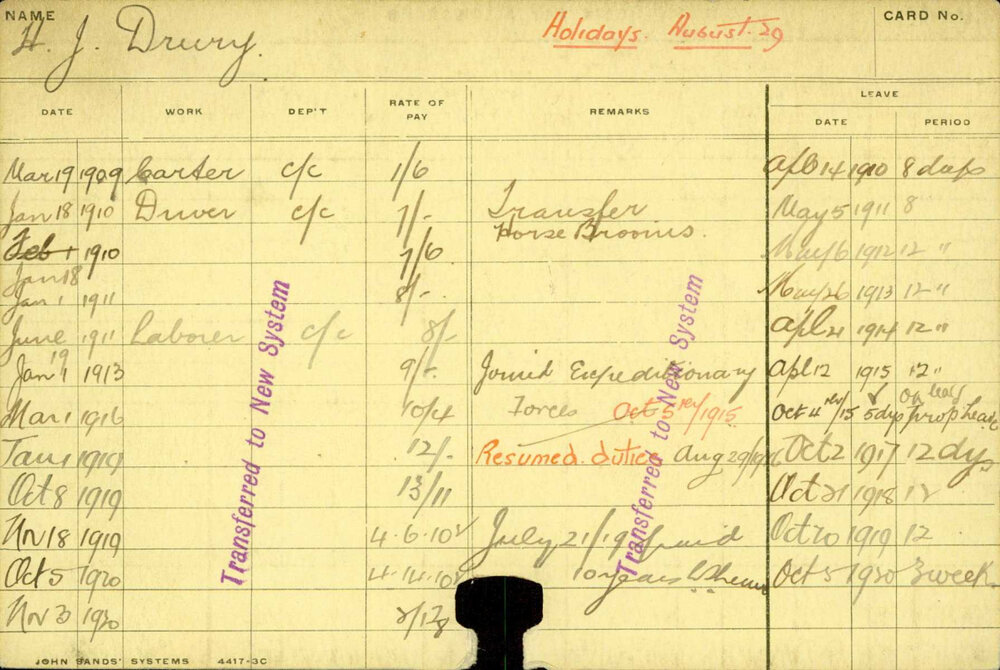 NAME
H. J. Drury.
Holidays. August. 29
CARD No.
DATE WORK DEP'T RATE OF PAY REMARKS LEAVE
DATE PERIOD
Mar 19 1909 Carter c/c 1/6 Apl 14 1910 8 days
Jan 18 1910 Driver c/c 7/- Transfer May 5 1911 8 "
Horse Brooms.
Feb 1 1910 7/6 May 6 1912 12 "
Jan 18
Jan 1 1911 8/- May 26 1913 12 "
June 19 1911 Laborer c/c 8/- Apl 21 1914 12 "
Jan 1 1913 9/- Joined Expeditionary Apl 12 1915 12 "
Mar 1 1916 10/4 Forces Oct 5th/1915 Oct 4th/15 5 dys
Jan 1 1919 12/- Resumed duties Aug 29/19 Oct 2 1917 12 dys
Oct 8 1919 13/11 Oct 21 1918 12
Nov 18 1919 4.6.10 July 21/19 paid Oct 20 1919 12
Oct 5 1920 4.14.10 10 years Oct 5 1920 3 week
Nov 3 1920
Transferred to New System
Transferred to New System
JOHN SANDS' SYSTEMS 4417-3C